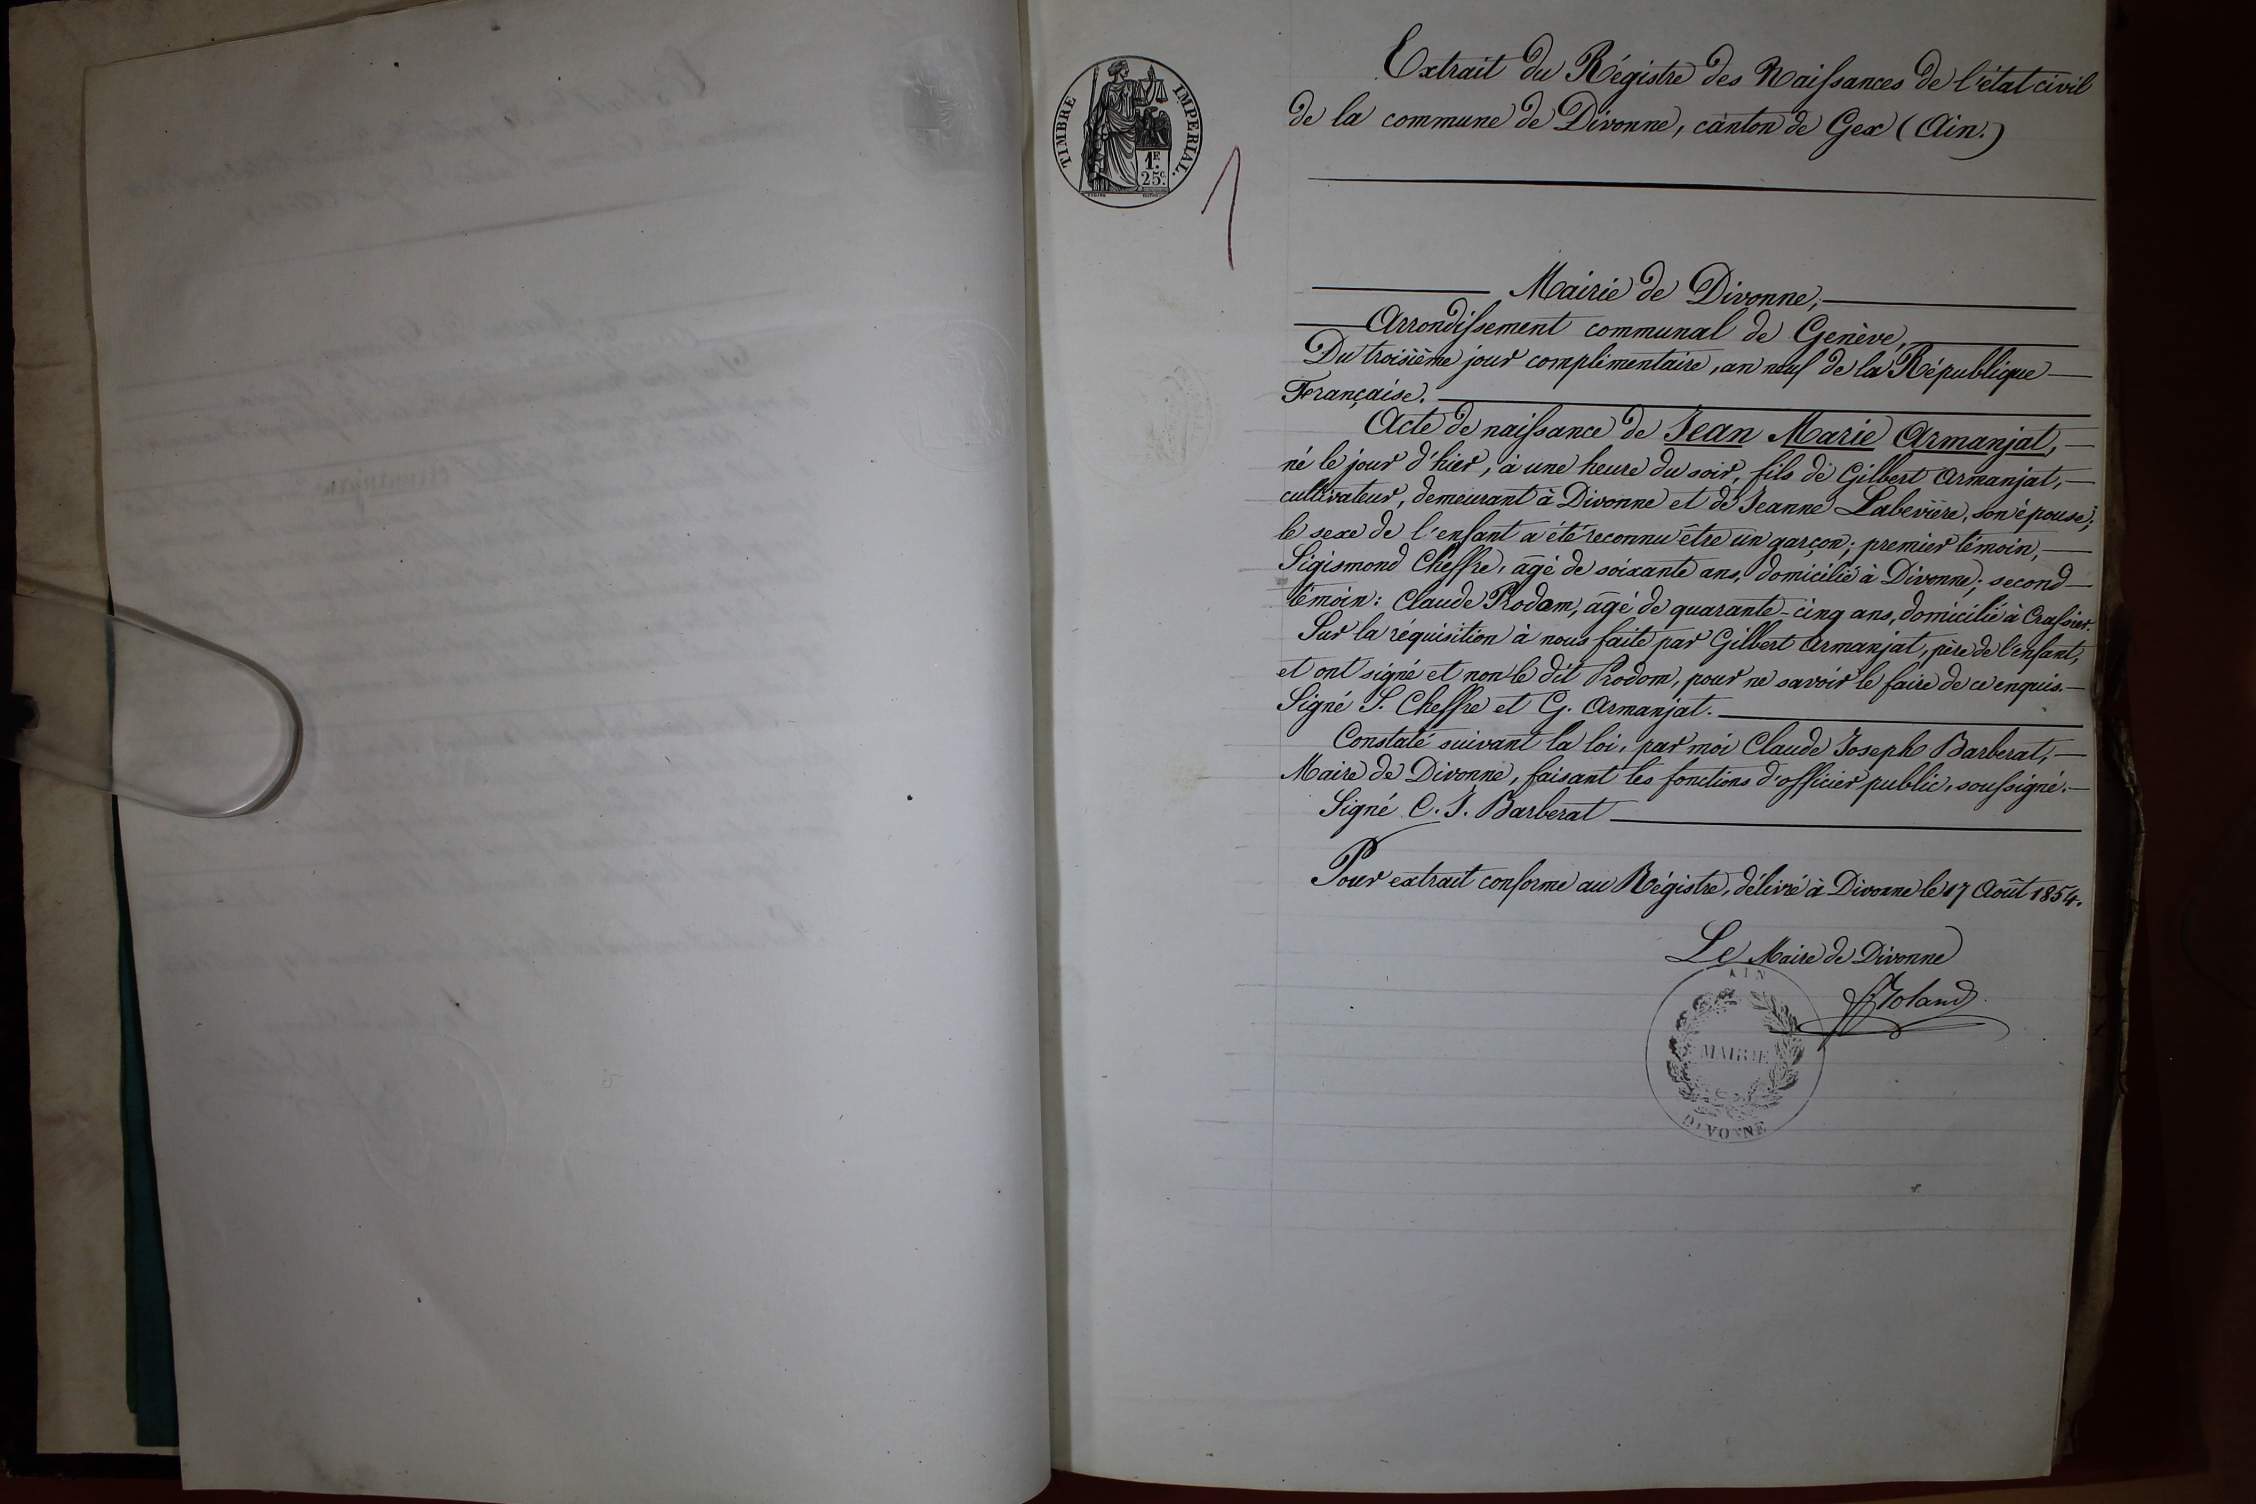 TIMBRE IMPERIAL.
1F.
25c.
1
Extrait du Régistre des Naissances de l'état civil
de la commune de Divonne, canton de Gex (Ain.)
Mairie de Divonne,
Arrondissement communal de Genève,
Du troisième jour complémentaire, an neuf de la République
Française.
Acte de naissance de Jean Marie Armanjat,
né le jour d'hier, à une heure du soir, fils de Gilbert Armanjat,
cultivateur, demeurant à Divonne et de Jeanne Labevière, son épouse;
le sexe de l'enfant a été reconnu être un garçon; premier témoin,
Sigismond Cheffre, âgé de soixante ans, domicilié à Divonne; second
témoin: Claude Prodom, âgé de quarante-cinq ans, domicilié à Crassier.
Sur la réquisition à nous faite par Gilbert Armanjat, père de l'enfant,
et ont signé et non le dit Prodom, pour ne savoir le faire de ce enquis.
Signé S. Cheffre et G. Armanjat.
Constaté suivant la loi, par moi Claude Joseph Barberat,
Maire de Divonne, faisant les fonctions d'officier public, soussigné.
Signé C. J. Barberat
Pour extrait conforme au Régistre, délivré à Divonne le 17 Août 1854.
Le Maire de Divonne
AIN
MAIRIE
DIVONNE